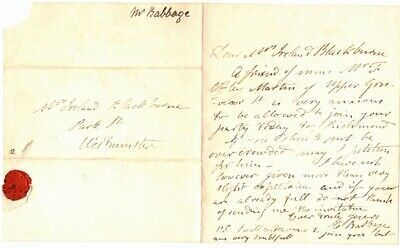 Mr Babbage
Mrs Ireland Blackburne
Park St
Westminster
2
Dear Mrs Ireland Blackburne
A friend of mine Mr F
Martin of Upper Gros-
venor St is very anxious
to be allowed to join your
party today to Richmond
If you should not be
overcrowded may I
for him — I have not
however given more than very
slight expectation and if you
are already full do not think
of sending me the invitation
Ever truly yours
C Babbage
PS I will endeavour to
join you but
am very doubtful